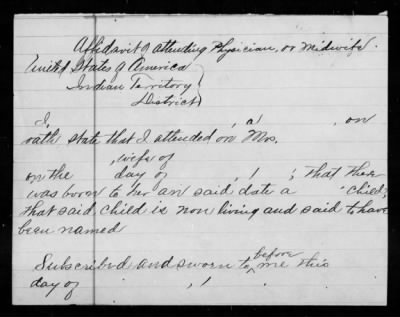 Affidavit of attending Physician, or Midwife.
United States of America
Indian Territory
District
I, , a , on
oath state that I attended on Mrs.
, wife of
on the day of , 1 ; That there
was born to her on said date a child;
that said child is now living and said to have
been named
Subscribed and sworn to before me this
day of , 1 .